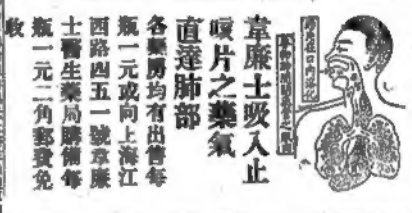 韋廉士吸入止
咳片之藥氣
直達肺部
各藥房均有出售每
瓶一元或向上海江
西路四五一號韋廉
士醫生藥局購備每
瓶一元二角郵費免
收